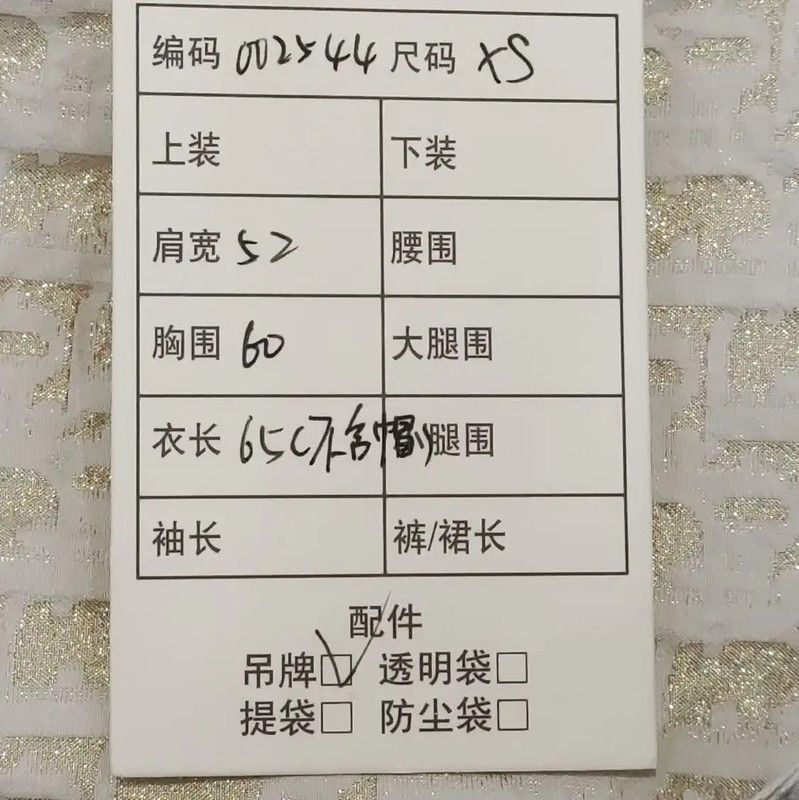 编码 002544 尺码 XS
上装 下装
肩宽 52 腰围
胸围 60 大腿围
衣长 65(不含帽) 腿围
袖长 裤/裙长
配件
吊牌☑ 透明袋□
提袋□ 防尘袋□